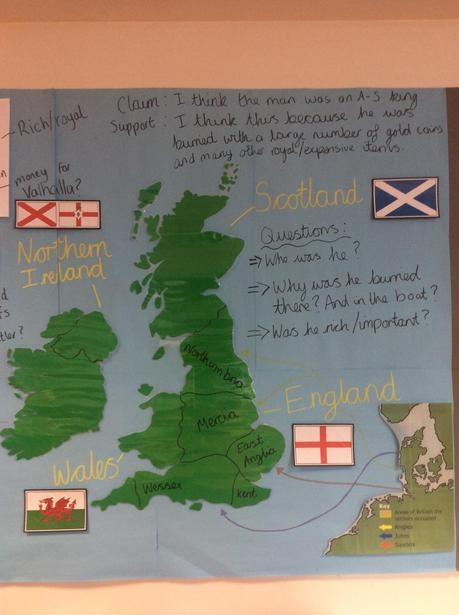 Claim : I think the man was an A-S king
Support : I think this because he was
buried with a large number of gold coins
and many other royal/expensive items.
Rich/royal
money for
Valhalla?
Scotland
Northern
Ireland
Questions:
⇒ Who was he?
⇒ Why was he burried
there? And in the boat?
⇒ Was he rich/important?
Northumbria
England
Mercia
East
Anglia
Wales
Wessex
Kent
Key
Areas of Britain the
settlers occupied
Angles
Jutes
Saxons